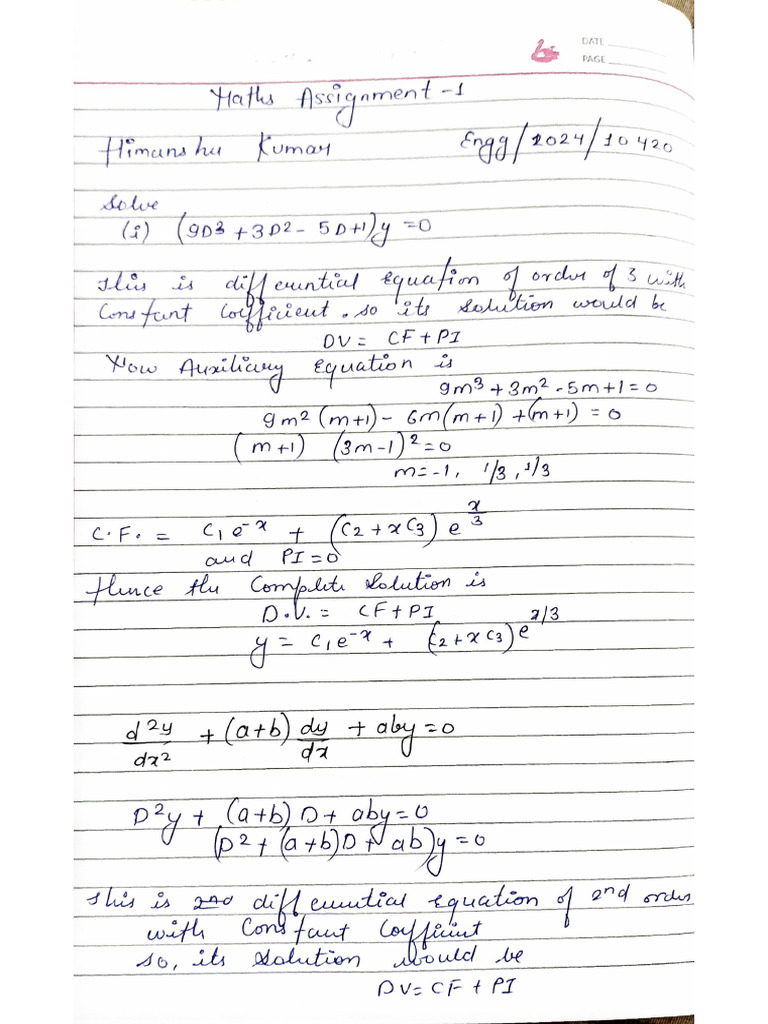 DATE
PAGE
Maths Assignment -1
Himanshu Kumar Engg/2024/10420
Solve
(i) (9D³ + 3D² - 5D+1)y = 0
This is differential equation of order of 3 with
Constant Coefficient. so its solution would be
DV = CF + PI
Now Auxiliary Equation is
9m³ + 3m² - 5m + 1 = 0
9m² (m+1) - 6m(m+1) + (m+1) = 0
(m+1) (3m-1)² = 0
m = -1, 1/3, 1/3
C.F. = C₁e⁻ˣ + (C₂ + xC₃) e^(x/3)
and PI = 0
Hence the Complete solution is
D.V. = CF + PI
y = C₁e⁻ˣ + (C₂ + xC₃) e^(x/3)
d²y/dx² + (a+b) dy/dx + aby = 0
D²y + (a+b) D + aby = 0
(D² + (a+b)D + ab)y = 0
This is 2nd differential equation of 2nd order
with Constant Cofficient
so, its solution would be
DV = CF + PI